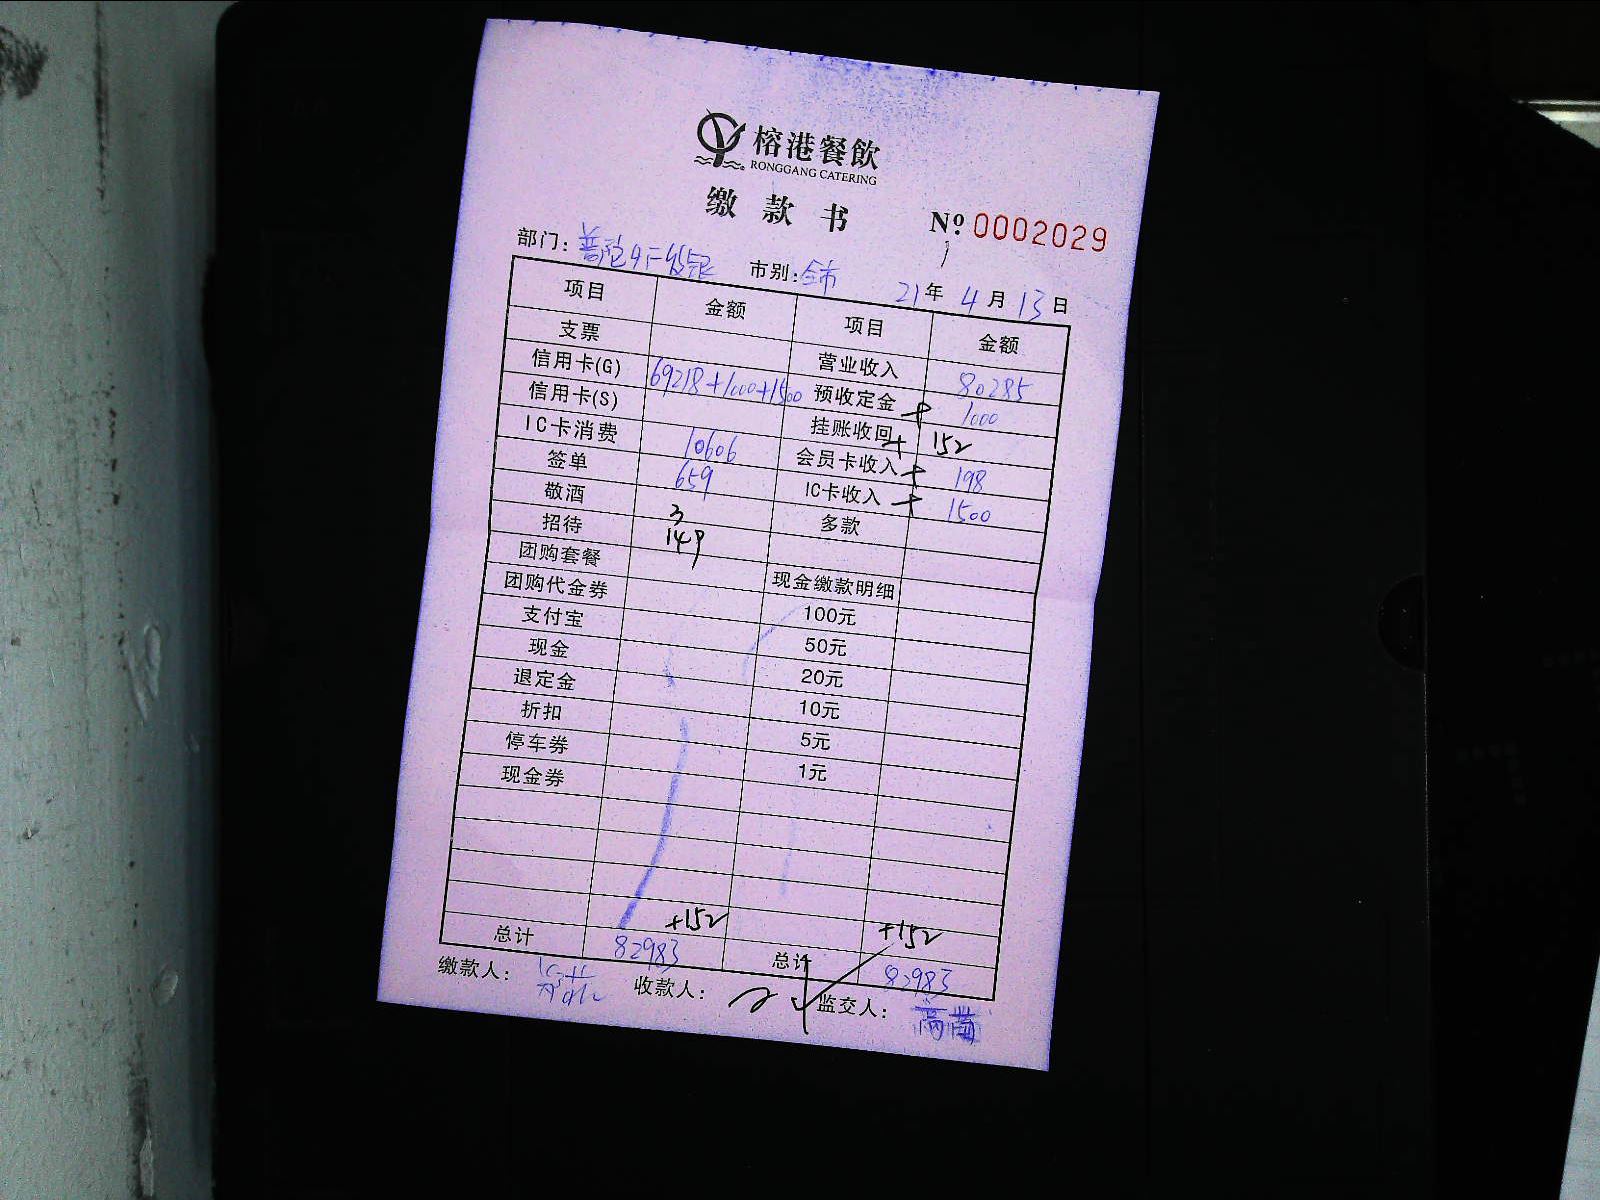 榕港餐飲
RONGGANG CATERING
缴款书
№ 0002029
部门: 普陀 市别: 全市 21年 4月 13日
项目 金额 项目 金额
支票 营业收入 80285
信用卡(G) 69218+1000+1500 预收定金 + 1000
信用卡(S) 挂账收回 + 152
IC卡消费 10606 会员卡收入 + 198
签单 659 IC卡收入 + 1500
敬酒 3 多款
招待 149
团购套餐 现金缴款明细
团购代金券 100元
支付宝 50元
现金 20元
退定金 10元
折扣 5元
停车券 1元
现金券
+152 +152
总计 82983 总计 82983
缴款人: 收款人: 监交人: